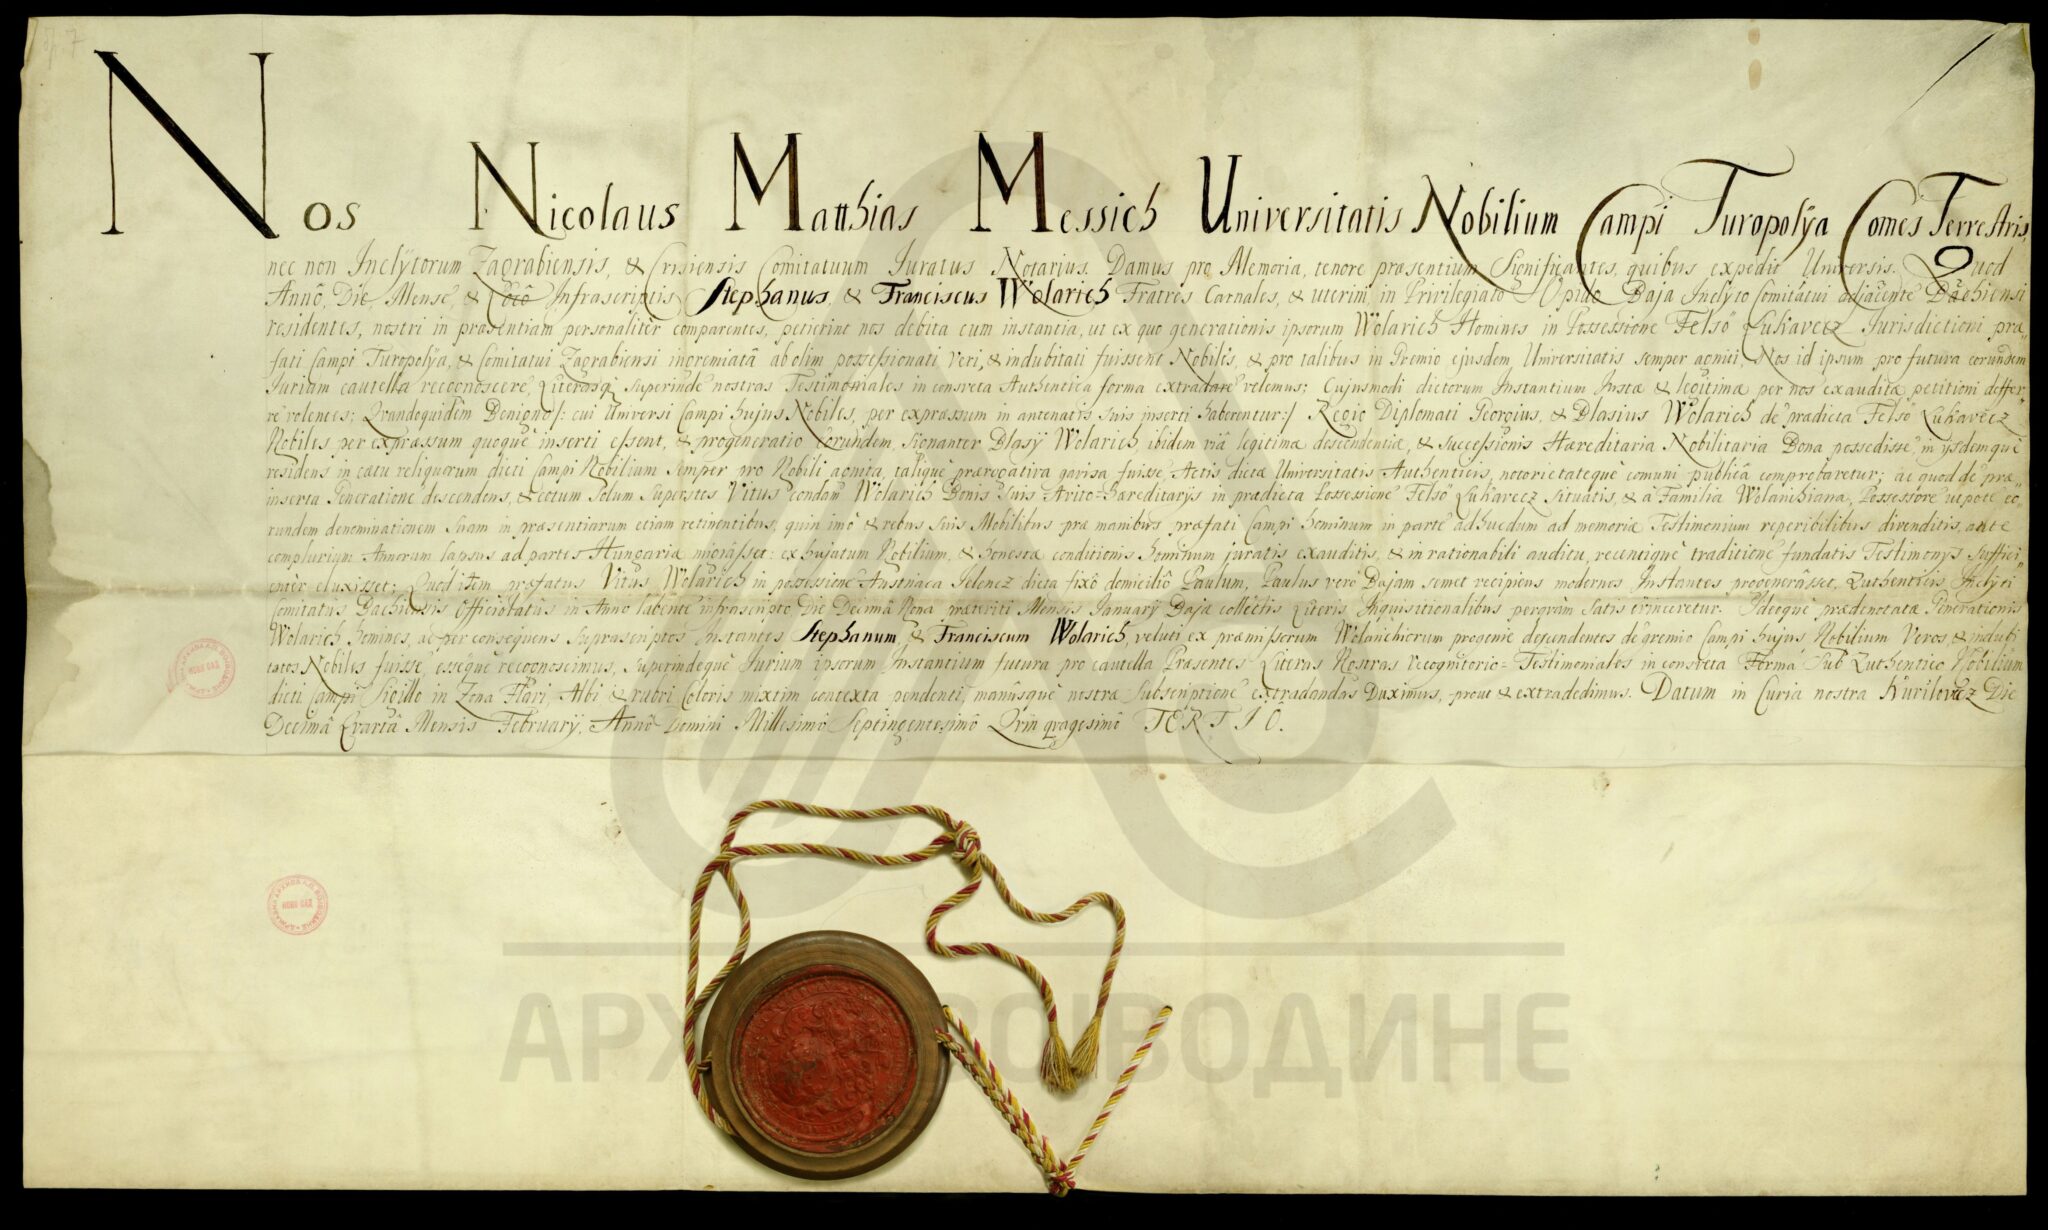 Nos Nicolaus Matthias Messich Universitatis Nobilium Campi Turopolÿa Comes Terrestris,
nec non Inclÿtorum Zagrabiensis, & Crisiensis Comitatuum Juratus Notarius. Damus pro Memoria, tenore præsentium Significantes, quibus expedit Universis. Quod
Annô, Die, Mense, & Locô Infrascriptis Stephanus, & Franciscus Wolarich Fratres Carnales, & uterini, in Privilegiato Opido Baja Inclÿto Comitatui adjacente Bachiensi
residentes, nostri in præsentiam personalitèr comparentes, petierint nos debita cum instantia, ut ex quo generationis ipsorum Wolarich Homines in Possessione Felsö Lukavecz Jurisdictioni præ
fati Campi Turopolÿa, & Comitatui Zagrabiensi ingremiatâ ab olim possessionati, veri, & indubitati fuissent Nobiles, & pro talibus in Gremio ejusdem Universitatis semper agniti, Nos id ipsum pro futura eorundem
Jurium cautella recognoscere, Literasq' superinde nostras Testimoniales in consveta Authentica forma extradare velemus; Cujusmodi dictorum Instantium Justæ & legitimæ per nos exauditâ petitioni deffer
re volentes; Quandoquidem Benigno /: cui Universi Campi hujus Nobiles, per expræssum in antenatis suis inserti haberentur :/ Regio Diplomati Georgius, & Blasius Wolarich de prædicta Felsö Lukavecz
Nobiles per expræssum quoque inserti essent, & progeneratio eorundem, signanter Blasÿ Wolarich, ibidem viâ legitimæ descendentiæ, & successionis Hæreditaria Nobilitaria Bona possedisse, in ÿsdemque
residens in cætu reliquorum dicti Campi Nobilium semper pro Nobili agnita, talique prærogativa gavisa fuisse, Actis dictæ Universitatis Authenticis, notorietateque comuni publicâ comprobaretur; ac quod de præ
inserta Generatione descendens, & ectum solum superstes Vitus condam Wolarich Bonis suis Avito-Hæreditarÿs in prædicta Possessione Felsö Lukavecz situatis, & â Familia Wolarichiana, Possessore utpote eo
rundem denominationem suam in præsentiarum etiam retinentibus, quin imô & rebus suis Mobilibus præ manibus præfati Campi hominum in parte adhucdum ad memoriæ Testimonium reperibilibus divenditis, ante
complurium Annorum lapsus ad partes Hungariæ migrâsset: ex hujatum Nobilium, & honestæ conditionis hominum juratis exauditis, & in rationabili auditu, recentique traditione fundatis Testimonÿs suffici
entèr eluxisset; Quod item præfatus Vitus Wolarich in possessione Austriaca Jelencz dicta fixô domiciliô Paulum, Paulus vero Bajam semet recipiens modernos Instantes progenerâsset, Authenticis Inclÿti
Comitatus Bachiensis Officiolatûs in Anno labente infrascripto Die Decimâ Nona præteriti Mensis Januarÿ Bajæ collectis Literis Inquisitionalibus pergvam satis evinceretur. Ideoque prædenotatæ Generationis
Wolarich homines, ac per consequens suprascriptos Instantes Stephanum, & Franciscum Wolarich, veluti ex præmissorum Wolarichiorum progenie descendentes de gremio Campi hujus Nobilium Veros, & indubi
tatos Nobiles fuisse, esseque recognoscimus, superindeque Jurium ipsorum Instantium futura pro cautella Præsentes Literas Nostras recognitorio=Testimoniales in consveta Formâ sub Authentico Nobilium
dicti Campi Sigillo in Zona Flavi, Albi & rubri Coloris mixtim contexta pendenti, manûsque nostræ subscriptione extradandas Duximus, prout & extradedimus. Datum in Curia nostra Kurilovecz Die
Decimâ Quartâ Mensis Februarÿ, Annô Domini Millesimô Septingentesimô Quinquagesimô TERTIO.
АРХИВ ВОЈВОДИНЕ